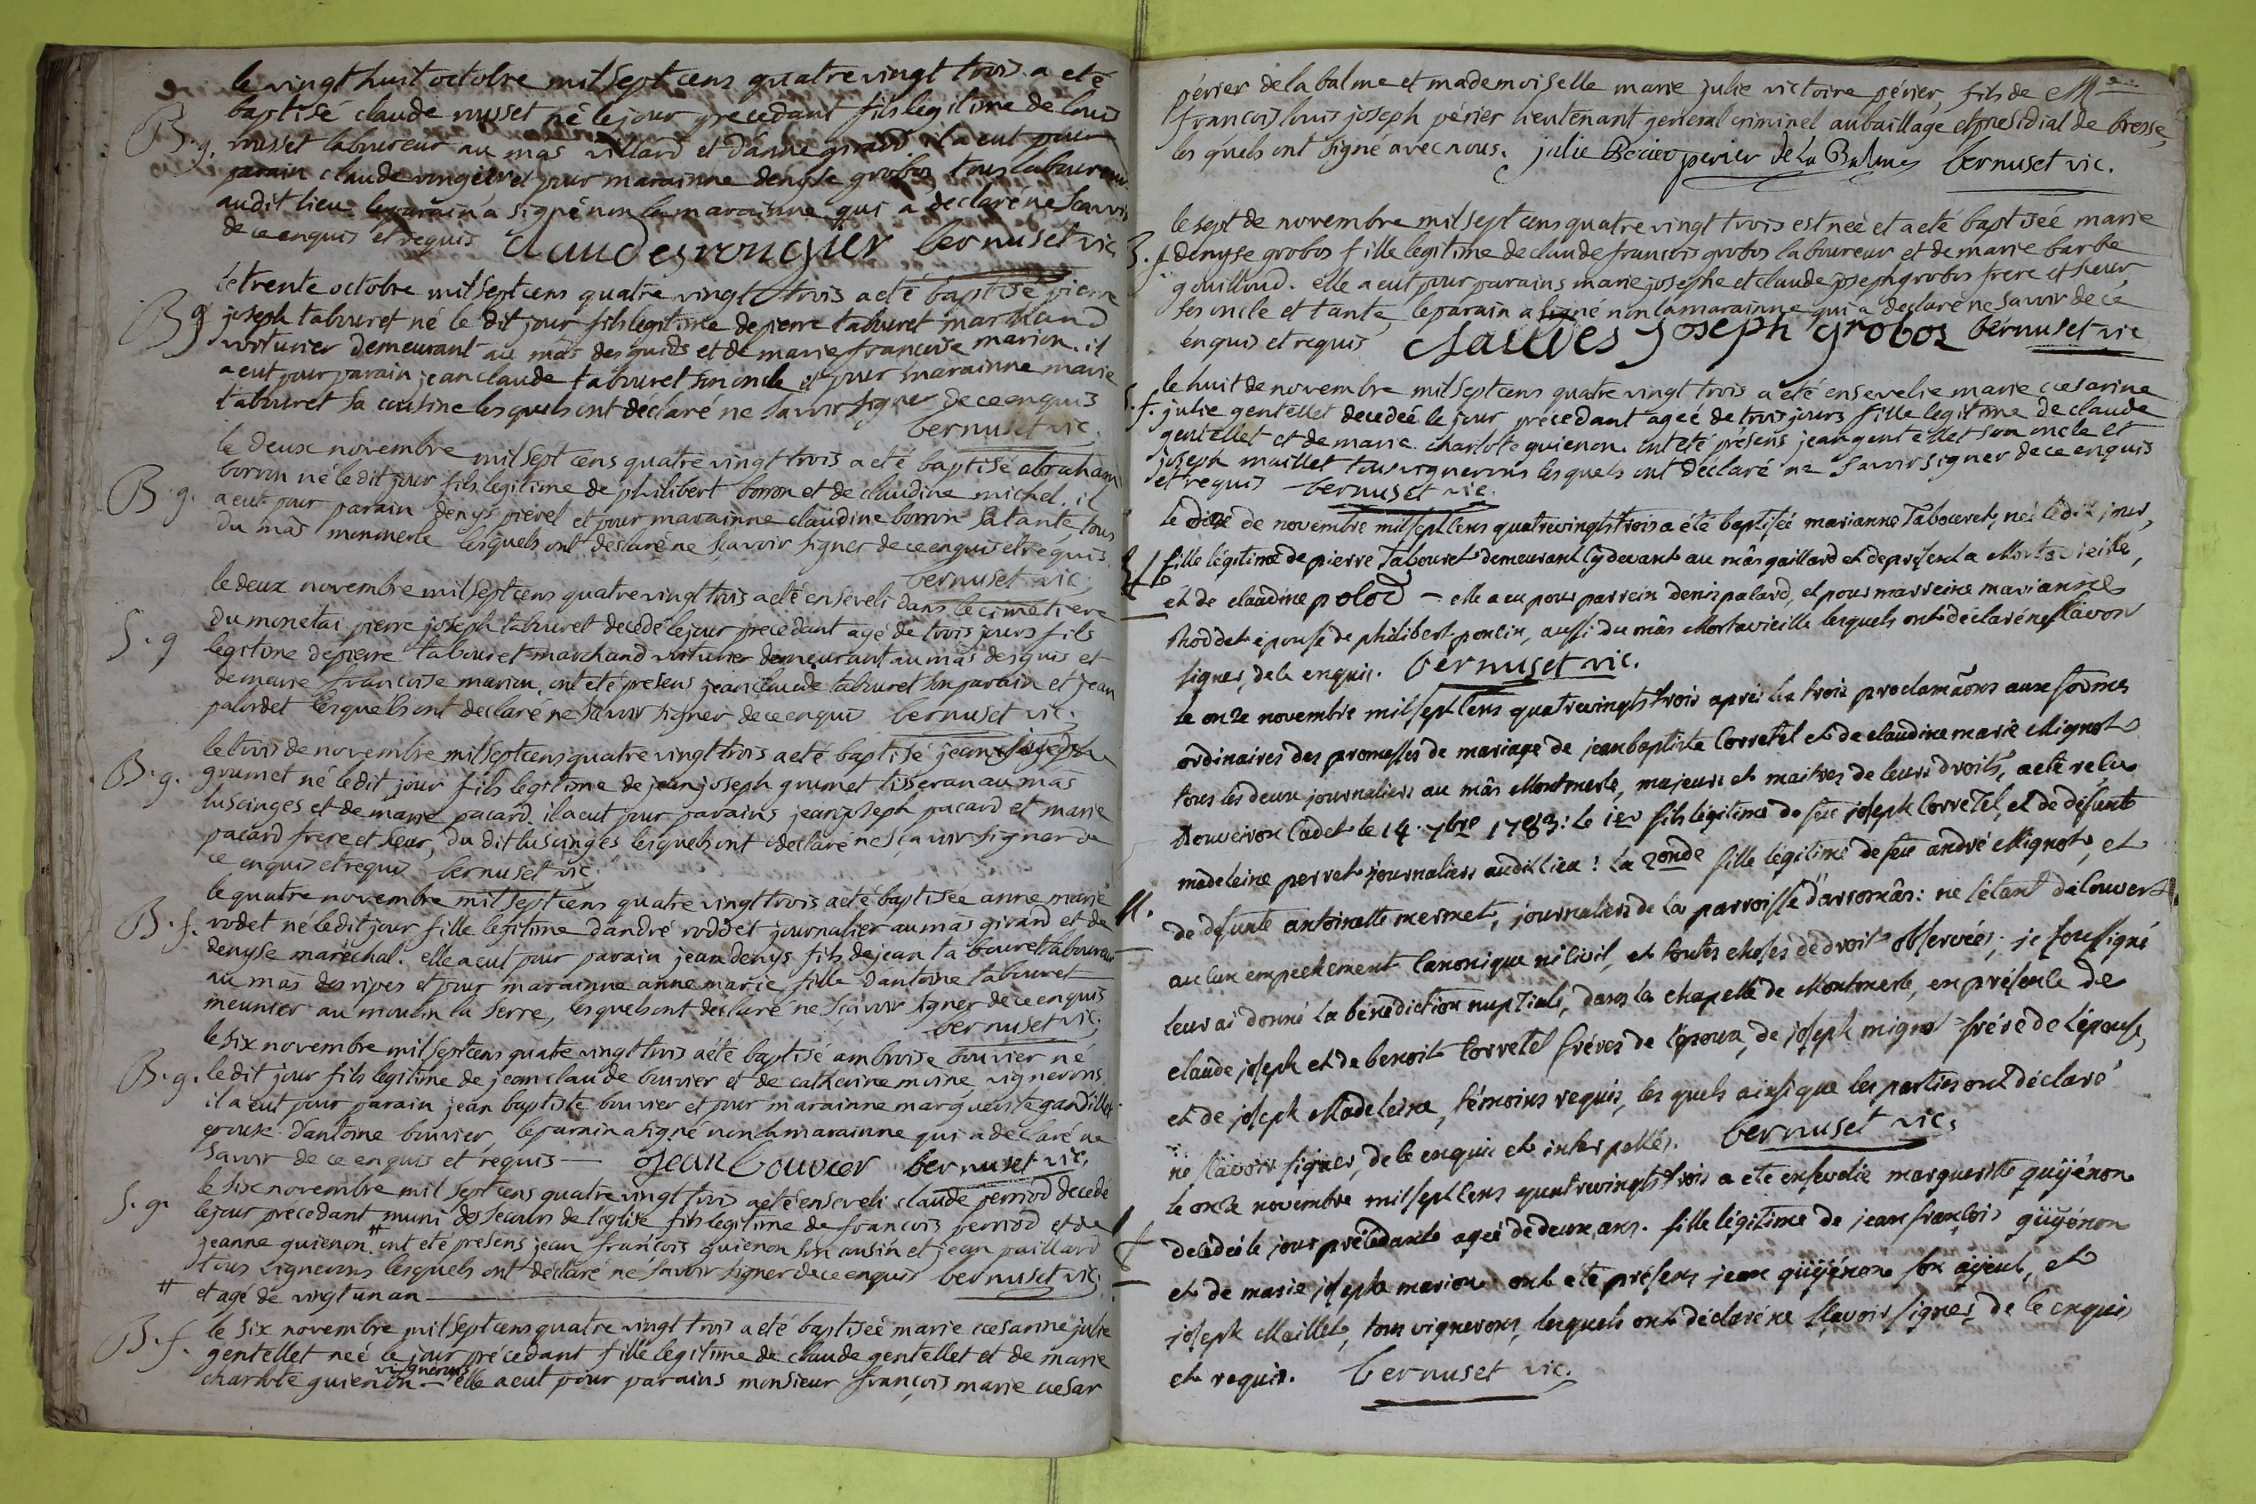 le vingt huit octobre mil sept cens quatre vingt trois a eté
baptisé claude rousset né le jour precedant fils legitime de louis
B. g. rousset laboureur au mas villard et d'anne girard. il a eut pour
parain claude rongier et pour marainne denyse grobos, tous laboureurs
au dit lieu le parain a signé non la marainne qui a declaré ne scavoir
de ce enquis et requis claudes rongier bernuset vic
le trente octobre mil sept cens quatre vingt trois a eté baptisé pierre
B g joseph tabouret né le dit jour fils legitime de pierre tabouret marchand
voiturier demeurant au mas des guids et de marie francoise marion. il
a eut pour parain jean claude tabouret son oncle et pour marainne marie
tabouret sa cousine lesquels ont déclaré ne savoir signer de ce enquis
bernuset vic.
le deux novembre mil sept cens quatre vingt trois a eté baptisé abraham
B. g. borron né le dit jour fils legitime de philibert borron et de claudine michel. il
a eut pour parain denys pierel et pour marainne claudine borron sa tante, tous
du mas monmerle lesquels ont declaré ne scavoir signer de ce enquis et requis.
bernuset vic.
le deux novembre mil sept cens quatre vingt trois a eté enseveli dans le cimetiere
S. g du monetai pierre joseph tabouret decedé le jour precedant agé de trois jours fils
legitime de pierre tabouret marchand voiturier demeurant au mas des guis et
de marie francoise marion, ont eté presens jean claude tabouret son parain et jean
palordet lesquels ont declaré ne savoir signer de ce enquis bernuset vic.
le trois de novembre mil sept cens quatre vingt trois a eté baptisé jean joseph
B. g. grumet né le dit jour fils legitime de jean joseph grumet tisseran au mas
luscinges et de marie pacard. il a eut pour parains jean joseph pacard et marie
pacard frere et sœur, du dit luscinges lesquels ont declaré ne scavoir signer de
ce enquis et requis bernuset vic.
le quatre novembre mil sept cens quatre vingt trois a eté baptisée anne marie
B. f. rodet né le dit jour fille legitime d'andré roddet journalier au mas girard et de
denyse maréchal. elle a eut pour parain jean denys fils de jean tabouret laboureur
au mas des ripes et pour marainne anne marie fille d'antoine tabouret
meunier au moulin la serre, lesquels ont declaré ne scavoir signer de ce enquis
bernuset vic.
le six novembre mil sept cens quatre vingt trois a été baptisé ambroise bouvier né
B. g. le dit jour fils legitime de jean claude bouvier et de catherine moine, vignerons
il a eut pour parain jean baptiste bouvier et pour marainne marguerite gandillet
epouse d'antoine bouvier, le parain a signé non la marainne qui a declaré ne
savoir de ce enquis et requis — Jean bouvier bernuset vic.
S. g. le six novembre mil sept cens quatre vingt trois a eté enseveli claude perriod decedé
le jour precedant muni des secours de l'eglise fils legitime de francois perriod et de
jeanne guienon. # ont eté presens jean francois guienon son cousin et jean paillard
tous vignerons lesquels ont déclaré ne savoir signer de ce enquis bernuset vic.
# et agé de vingt un an —
B. f. le six novembre mil sept cens quatre vingt trois a eté baptiseé marie cesarine julie
gentellet neé le jour précedant fille legitime de claude gentellet et de marie
vignerons
charlote guienon. — elle a eut pour parains monsieur françois marie cesar
périer de la balme et mademoiselle marie julie victoire périer, fils de Mr
francois louis joseph périer lieutenant general criminel au baillage et presidial de bresse,
les quels ont signé avec nous. julie Perier perier de La Balmes bernuset vic.
le sept de novembre mil sept cens quatre vingt trois est neé et a eté baptiseé marie
B. f denyse grobos fille legitime de claude francois grobos laboureur et de marie barbe
gouilloud. elle a eut pour parains marie josephe et claude joseph grobos frere et sœur,
ses oncle et tante, le parain a signé non la marainne qui a declaré ne savoir de ce
enquis et requis claudes joseph grobos bernuset vic
le huit de novembre mil sept cens quatre vingt trois a eté ensevelie marie cesarine
S. f. julie gentellet decedeé le jour précedant ageé de trois jours fille legitime de claude
gentellet et de marie charlote guienon. ont eté présens jean gentellet son oncle et
joseph maillet tous vignerons lesquels ont declaré ne savoir signer de ce enquis
et requis bernuset vic.
le dix de novembre mil sept cens quatrevingts trois a été baptiseé marianne Tabouret, neé le dit jour,
B f fille légitime de pierre Tabouret demeurant cy devant au mâs gaillard et de present a Mortavieille,
et de claudine polod — elle a eu pour parrein denis palard, et pour marreine marianne
Roddet épouse de philibert poncin, aussi du mâs Mortavieille lesquels ont déclaré ne scavoir
signer, de ce enquis. bernuset vic.
le onze novembre mil sept cens quatrevingts trois après les trois proclamaõns aux formes
ordinaires des promesses de mariage de jean baptiste Corretel et de claudine marie Mignot
tous les deux journaliers au mâs Montmerle, majeurs et maitres de leurs droits, acte reçu
Douveirox cadet le 14 7bre 1783: le 1er fils légitime de feu joseph Corretel, et de défunte
madeleine perret journaliers audit lieu: la 2onde fille légitime de feu andré Mignot, et
M. de defunte antoinette mermet, journaliers de la parroisse d'arromâs: ne s'etant découvert
aucun empechement canonique ni civil, et toutes choses de droit observées; je soussigné
leur ai donné la bénédiction nuptiale, dans la chapelle de Montmerle, en présence de
claude joseph et de benoit Corretel fréres de l'époux, de joseph mignot frére de l'épouse,
et de joseph Madeleine, témoins requis, les quels ainsi que les parties ont déclaré
ne sçavoir signer, de ce enquis et interpellés. bernuset vic.
le onze novembre mil sept cens quatrevingts trois a été ensevelie marguerite guyénon
S f decedeé le jour précédant ageé de deux ans. fille légitime de jean françois guyénon
et de marie joseph marion ont eté présens jean guyénon son ayeul, et
joseph Maillet, tous vignerons, lesquels ont déclaré ne sçavoir signer, de ce enquis
et requis. bernuset vic.